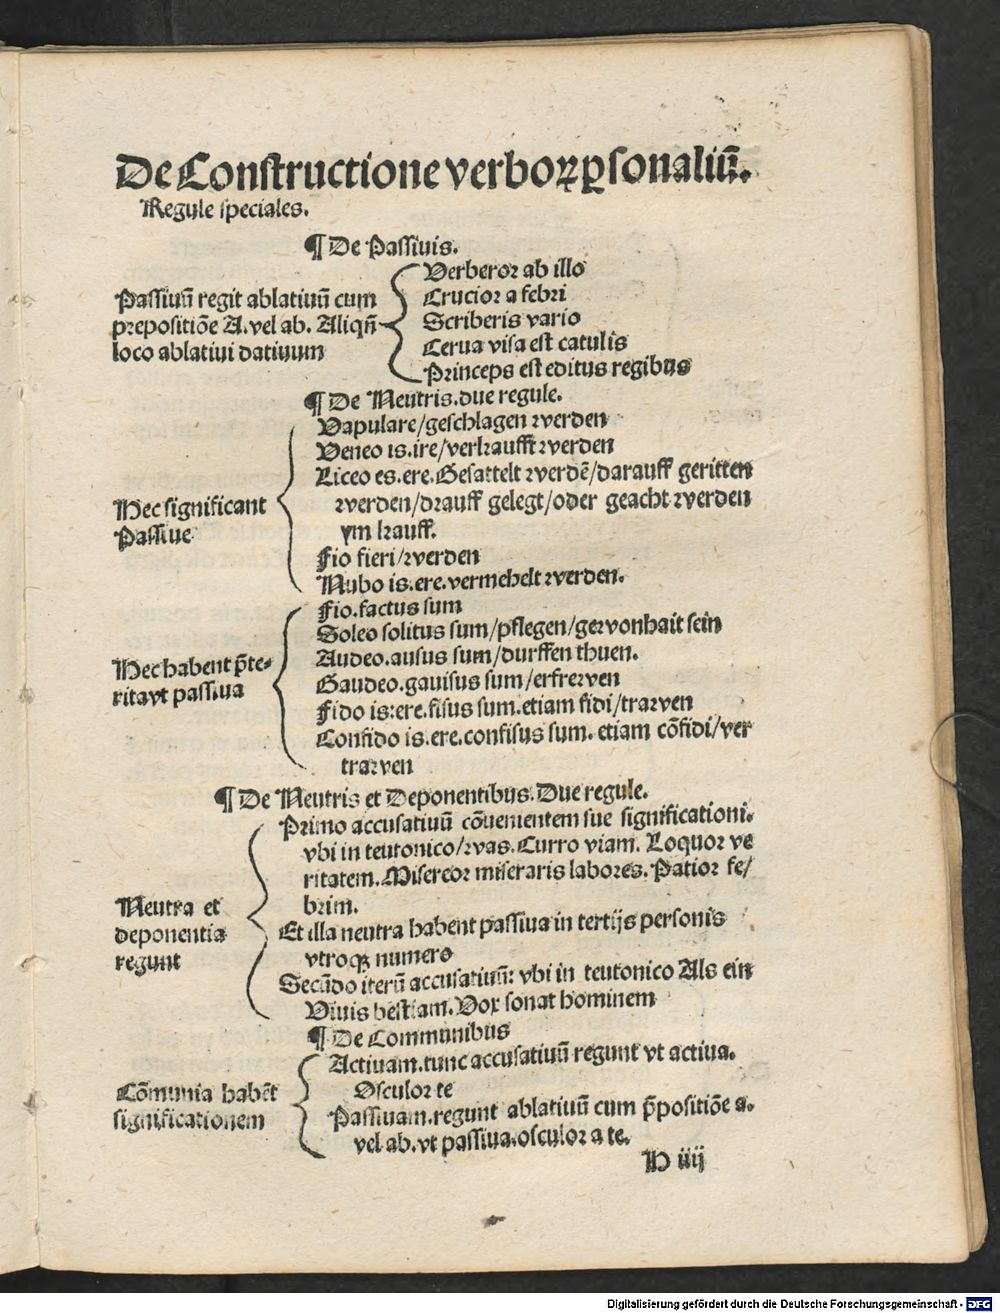 De Constructione verboꝝ ꝑsonaliū.
Regule speciales.
¶ De Passiuis.
Passiuū regit ablatiuū cum
prepositiōe A. vel ab. Aliqñ
loco ablatiui datiuum
Verberor ab illo
Crucior a febri
Scriberis vario
Cerua visa est catulis
Princeps est editus regibus
¶ De Neutris. due regule.
Hec significant
Passiue
Vapulare/geschlagen werden
Veneo is. ire/verkaufft werden
Liceo es. ere. Gesattelt werdē/darauff geritten
werden/drauff gelegt/oder geacht werden
ym kauff.
Fio fieri/werden
Nubo is. ere. vermehelt werden.
Hec habent p̄te-
ritavt passiua
Fio. factus sum
Soleo solitus sum/pflegen/gewonhait sein
Audeo. ausus sum/durffen thuen.
Gaudeo. gauisus sum/erfrewen
Fido is: ere. fisus sum. etiam fidi/trawen
Confido is. ere. confisus sum. etiam cōfidi/ver
trawen
¶ De Neutris et Deponentibus. Due regule.
Neutra et
deponentia
regunt
Primo accusatiuū cōuenientem sue significationi.
vbi in teutonico/was. Curro viam. Loquor ve
ritatem. Misereor miseraris labores. Patior fe/
brim.
Et illa neutra habent passiua in tertijs personis
vtroqꝫ numero
Secūdo iterū accusatiuū: vbi in teutonico Als ein
Viuis bestiam. Vox sonat hominem
¶ De Communibus
Cōmunia habēt
significationem
Actiuam. tunc accusatiuū regunt vt actiua.
Osculor te
Passiuam. regunt ablatiuū cum p̄positiōe a.
vel ab. vt passiua. osculor a te.
H iiij
Digitalisierung gefördert durch die Deutsche Forschungsgemeinschaft - DFG